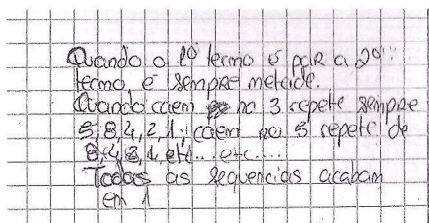 Quando o 1º termo é paR a 2º
termo é sempre metade.
Quando caem no 3 repete sempre
5,8,4,2,1; caem no 5 repete de
8,4,2,1, etc...etc....
Todas as sequencias acabam
em 1